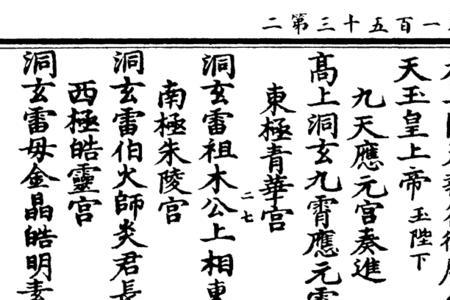 一百五十三第二
天玉皇上帝玉陛下
九天應元宮奏進
高上洞玄九霄應元
東極青華宮
二七
洞玄雷祖木公上相東
南極朱陵宮
洞玄雷伯火師炎君長
西極皓靈宮
洞玄雷毋金晶皓明素